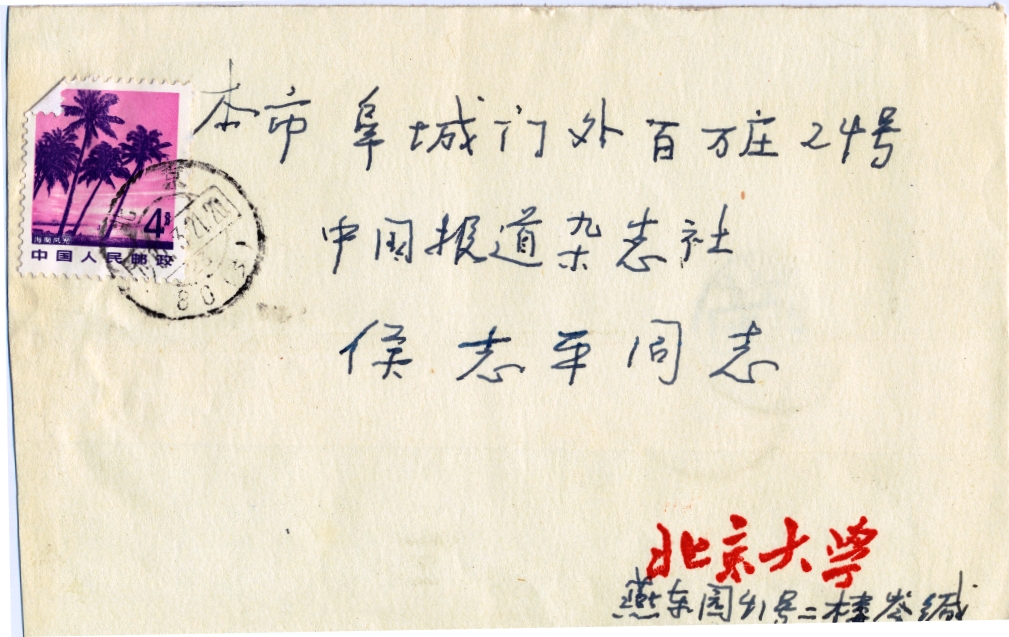 本市 阜城门外百万庄24号
中国报道杂志社
侯志平同志
4分
海南风光
中国人民邮政
北京大学
燕东园41号二楼岑缄